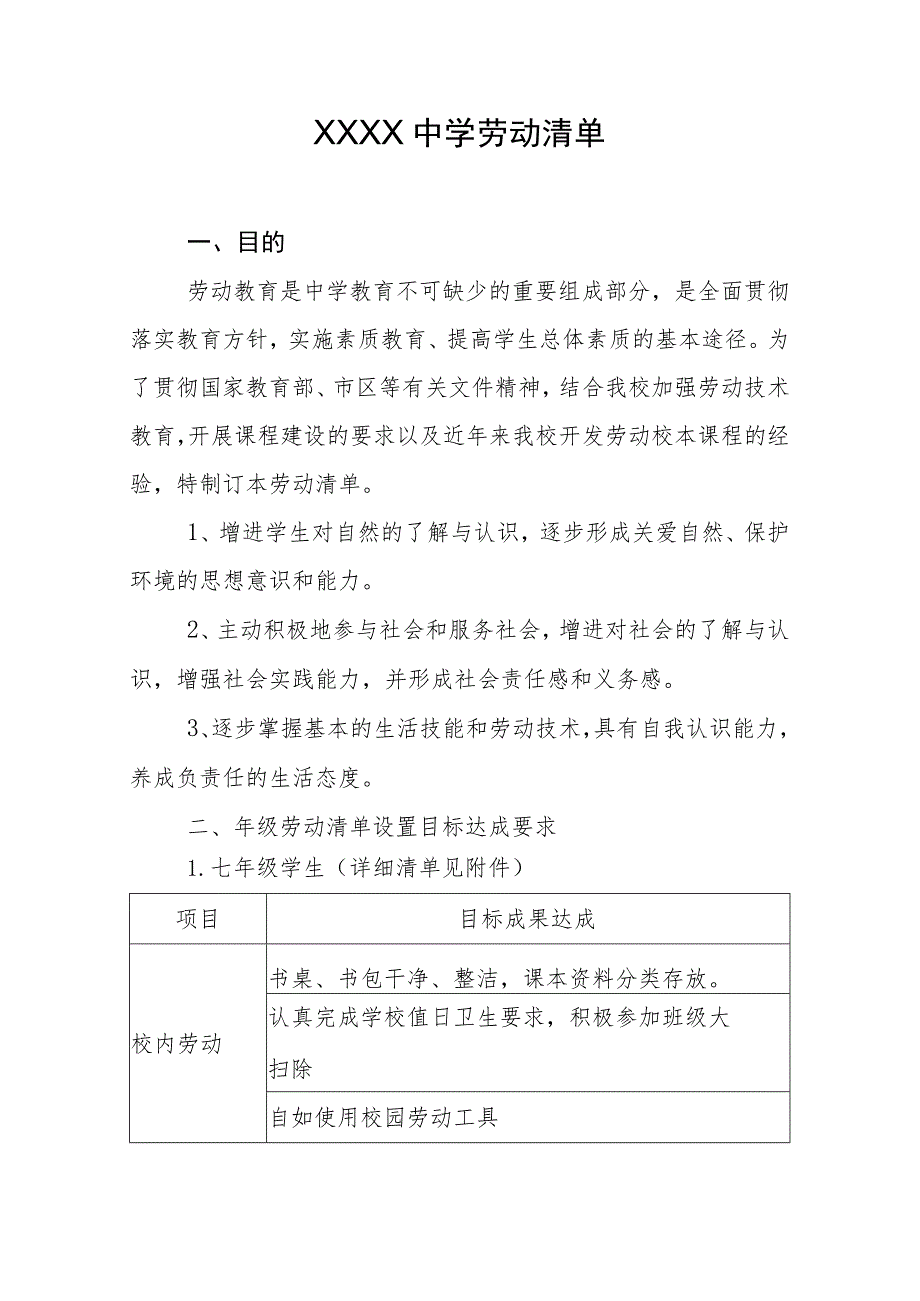 XXXX 中学劳动清单
一、目的
劳动教育是中学教育不可缺少的重要组成部分，是全面贯彻
落实教育方针，实施素质教育、提高学生总体素质的基本途径。为
了贯彻国家教育部、市区等有关文件精神，结合我校加强劳动技术
教育，开展课程建设的要求以及近年来我校开发劳动校本课程的经
验，特制订本劳动清单。
1、增进学生对自然的了解与认识，逐步形成关爱自然、保护
环境的思想意识和能力。
2、主动积极地参与社会和服务社会，增进对社会的了解与认
识，增强社会实践能力，并形成社会责任感和义务感。
3、逐步掌握基本的生活技能和劳动技术，具有自我认识能力，
养成负责任的生活态度。
二、年级劳动清单设置目标达成要求
1.七年级学生（详细清单见附件）
项目 目标成果达成
校内劳动
书桌、书包干净、整洁，课本资料分类存放。
认真完成学校值日卫生要求，积极参加班级大
扫除
自如使用校园劳动工具